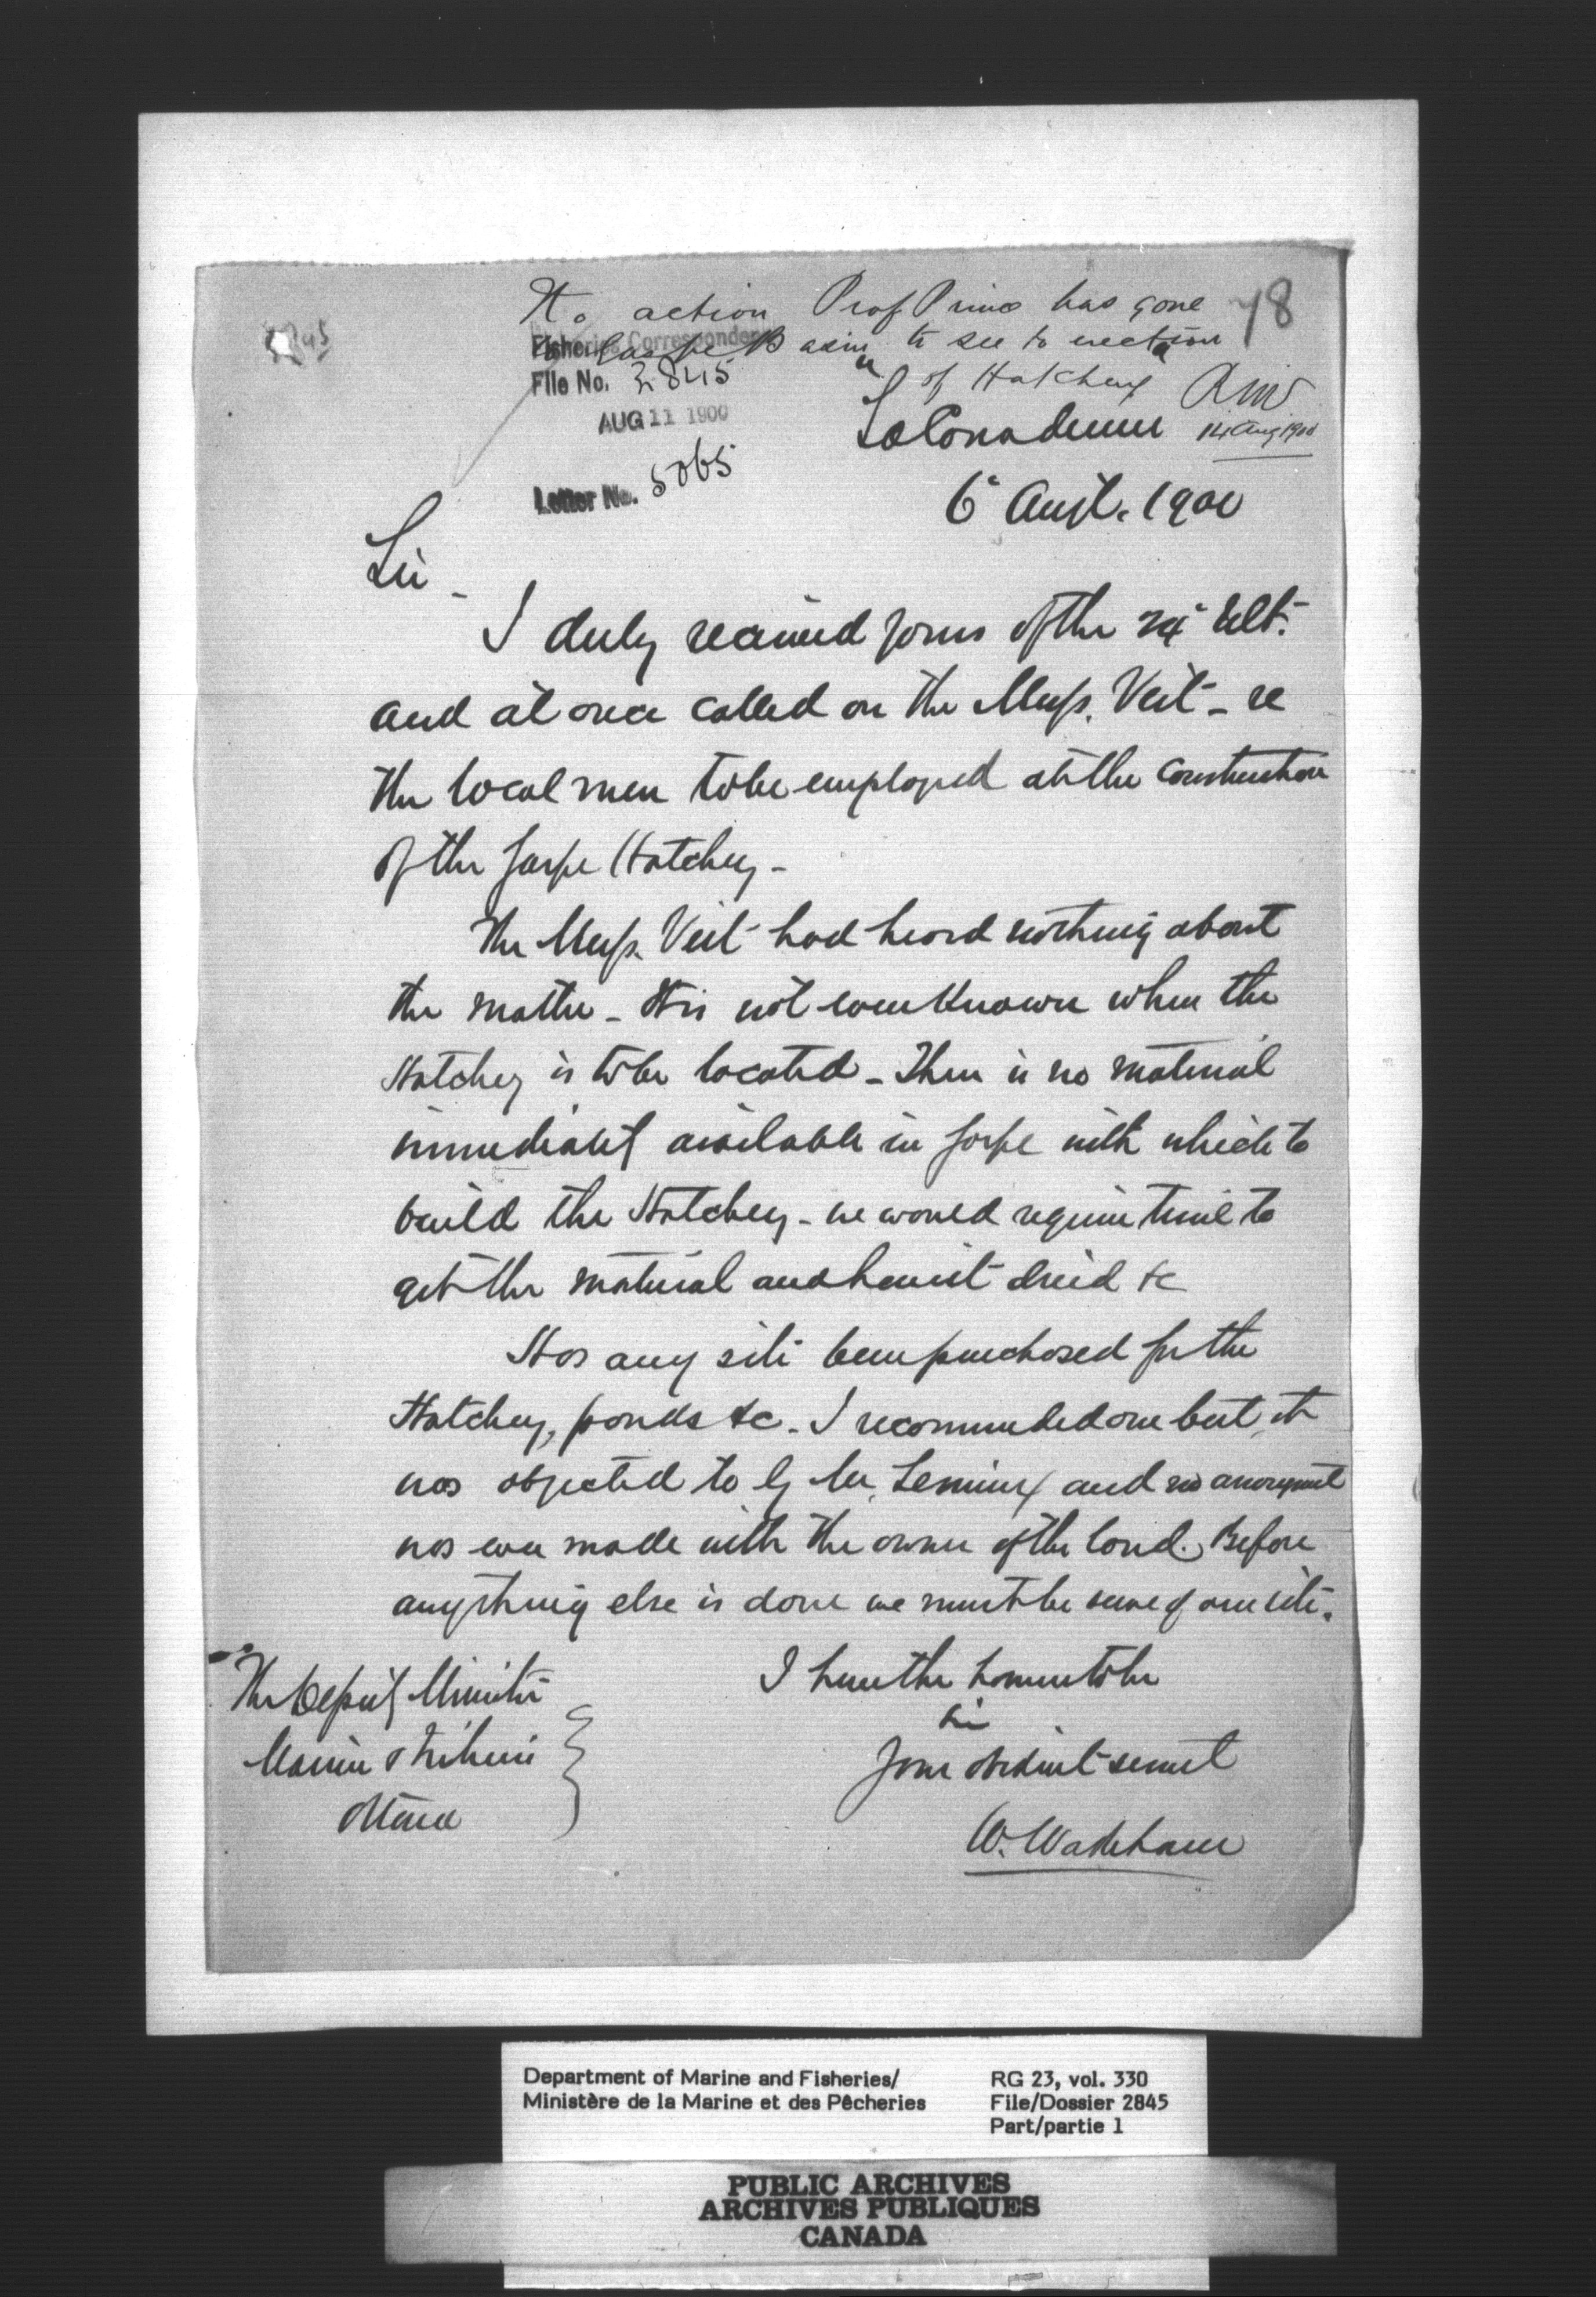 No action Prof Prince has gone 78
to Gaspe Basin to see to erection
of Hatchery RNV
14 Aug 1900
2845
Fisheries Correspondence
File No. 2845
AUG 11 1900
Letter No. 5065
"La Canadienne"
6th Augt. 1900
Sir -
I duly received yours of the 24th Ult.
and at once called on the Messrs. Veit - re
the local men to be employed at the construction
of the Gaspe Hatchery -
The Messrs. Veit had heard nothing about
the matter - It is not even known where the
Hatchery is to be located - There is no material
immediately available in Gaspe with which to
build the Hatchery - we would require time to
get the material and have it dried &c
Has any site been purchased for the
Hatchery, ponds &c - I recommended one but it
was objected to by Mr. Lemieux and no arrangement
was ever made with the owner of the land. Before
anything else is done we must be sure of our site.
I have the honour to be
Sir
Your obedient servant
W. Wakeham
The Deputy Minister
Marine & Fisheries
Ottawa
Department of Marine and Fisheries/
Ministère de la Marine et des Pêcheries
RG 23, vol. 330
File/Dossier 2845
Part/partie 1
PUBLIC ARCHIVES
ARCHIVES PUBLIQUES
CANADA